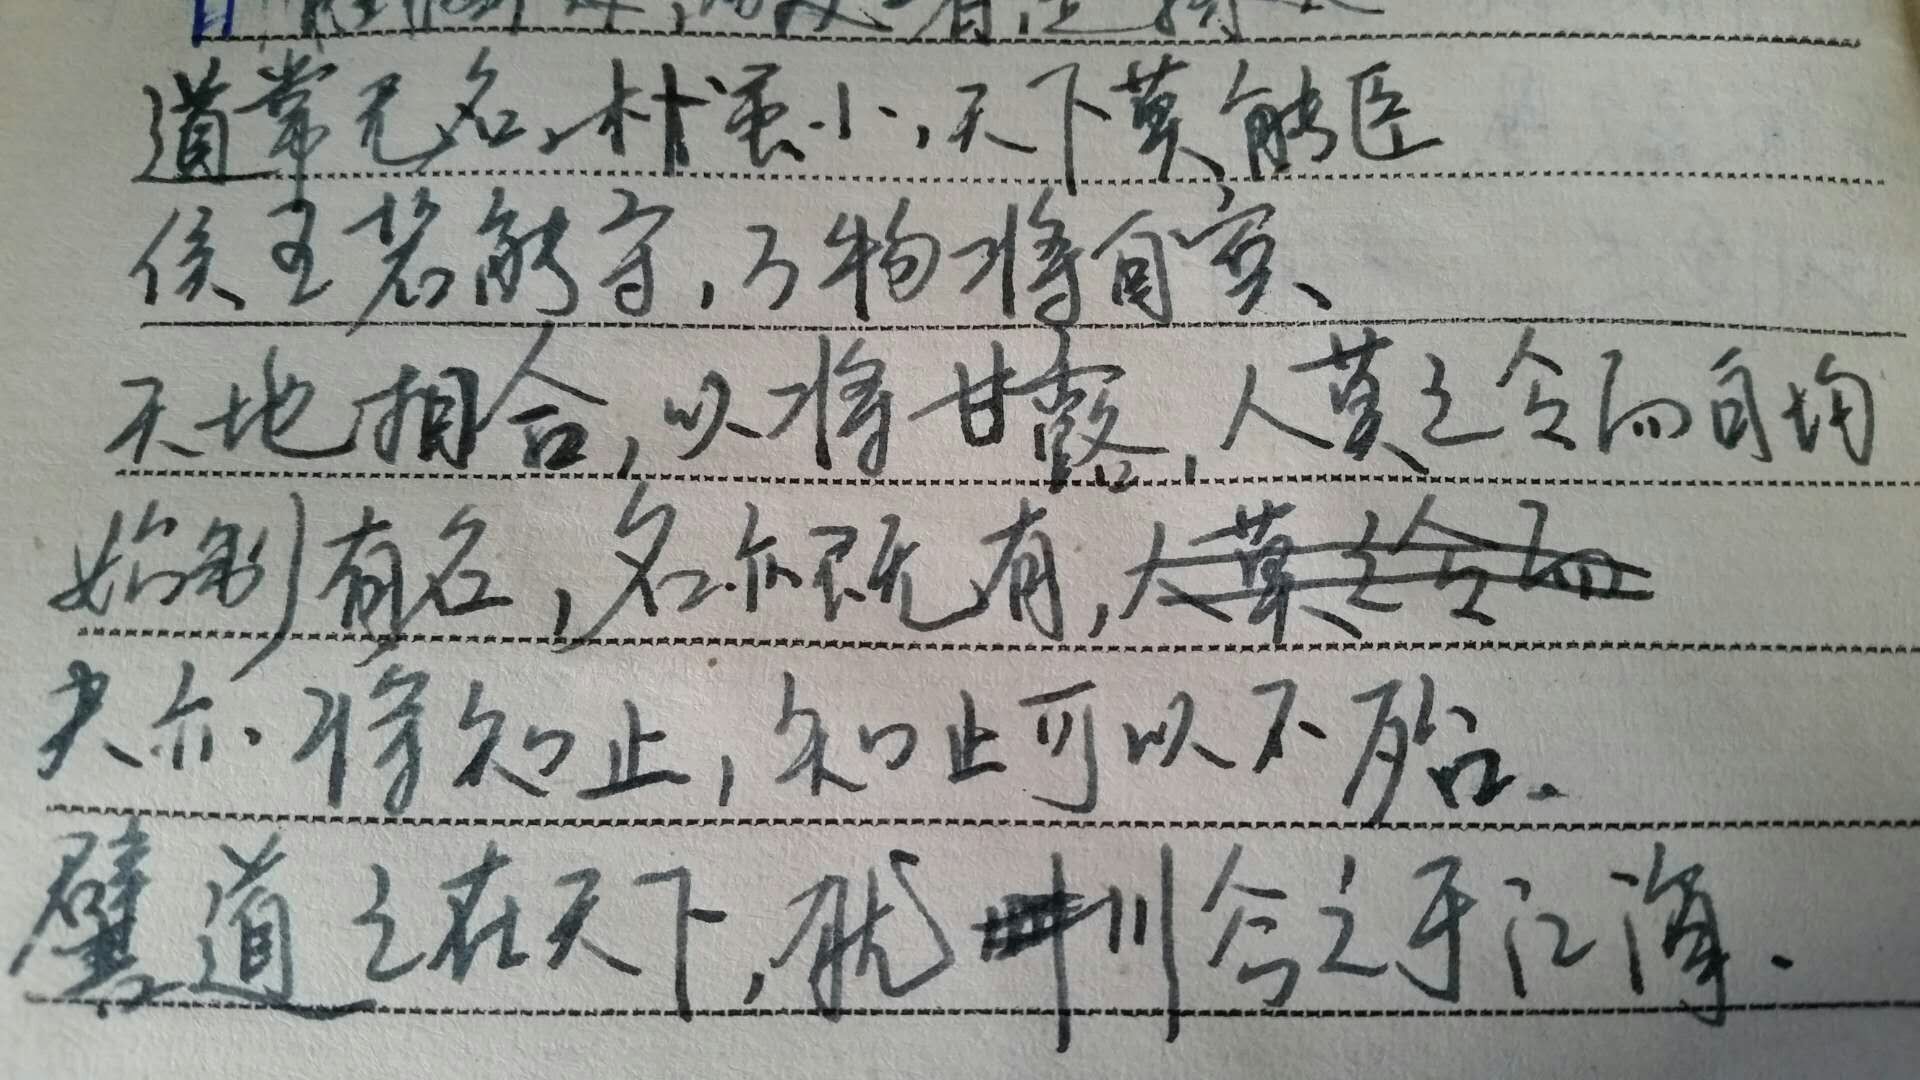 道常无名,朴虽小,天下莫能臣
侯王若能守,万物将自宾、
天地相合,以将甘露,人莫之令而自均
始制有名,名亦既有,人莫之令而
夫亦将知止,知止可以不殆.
譬道之在天下,犹川谷之于江海.